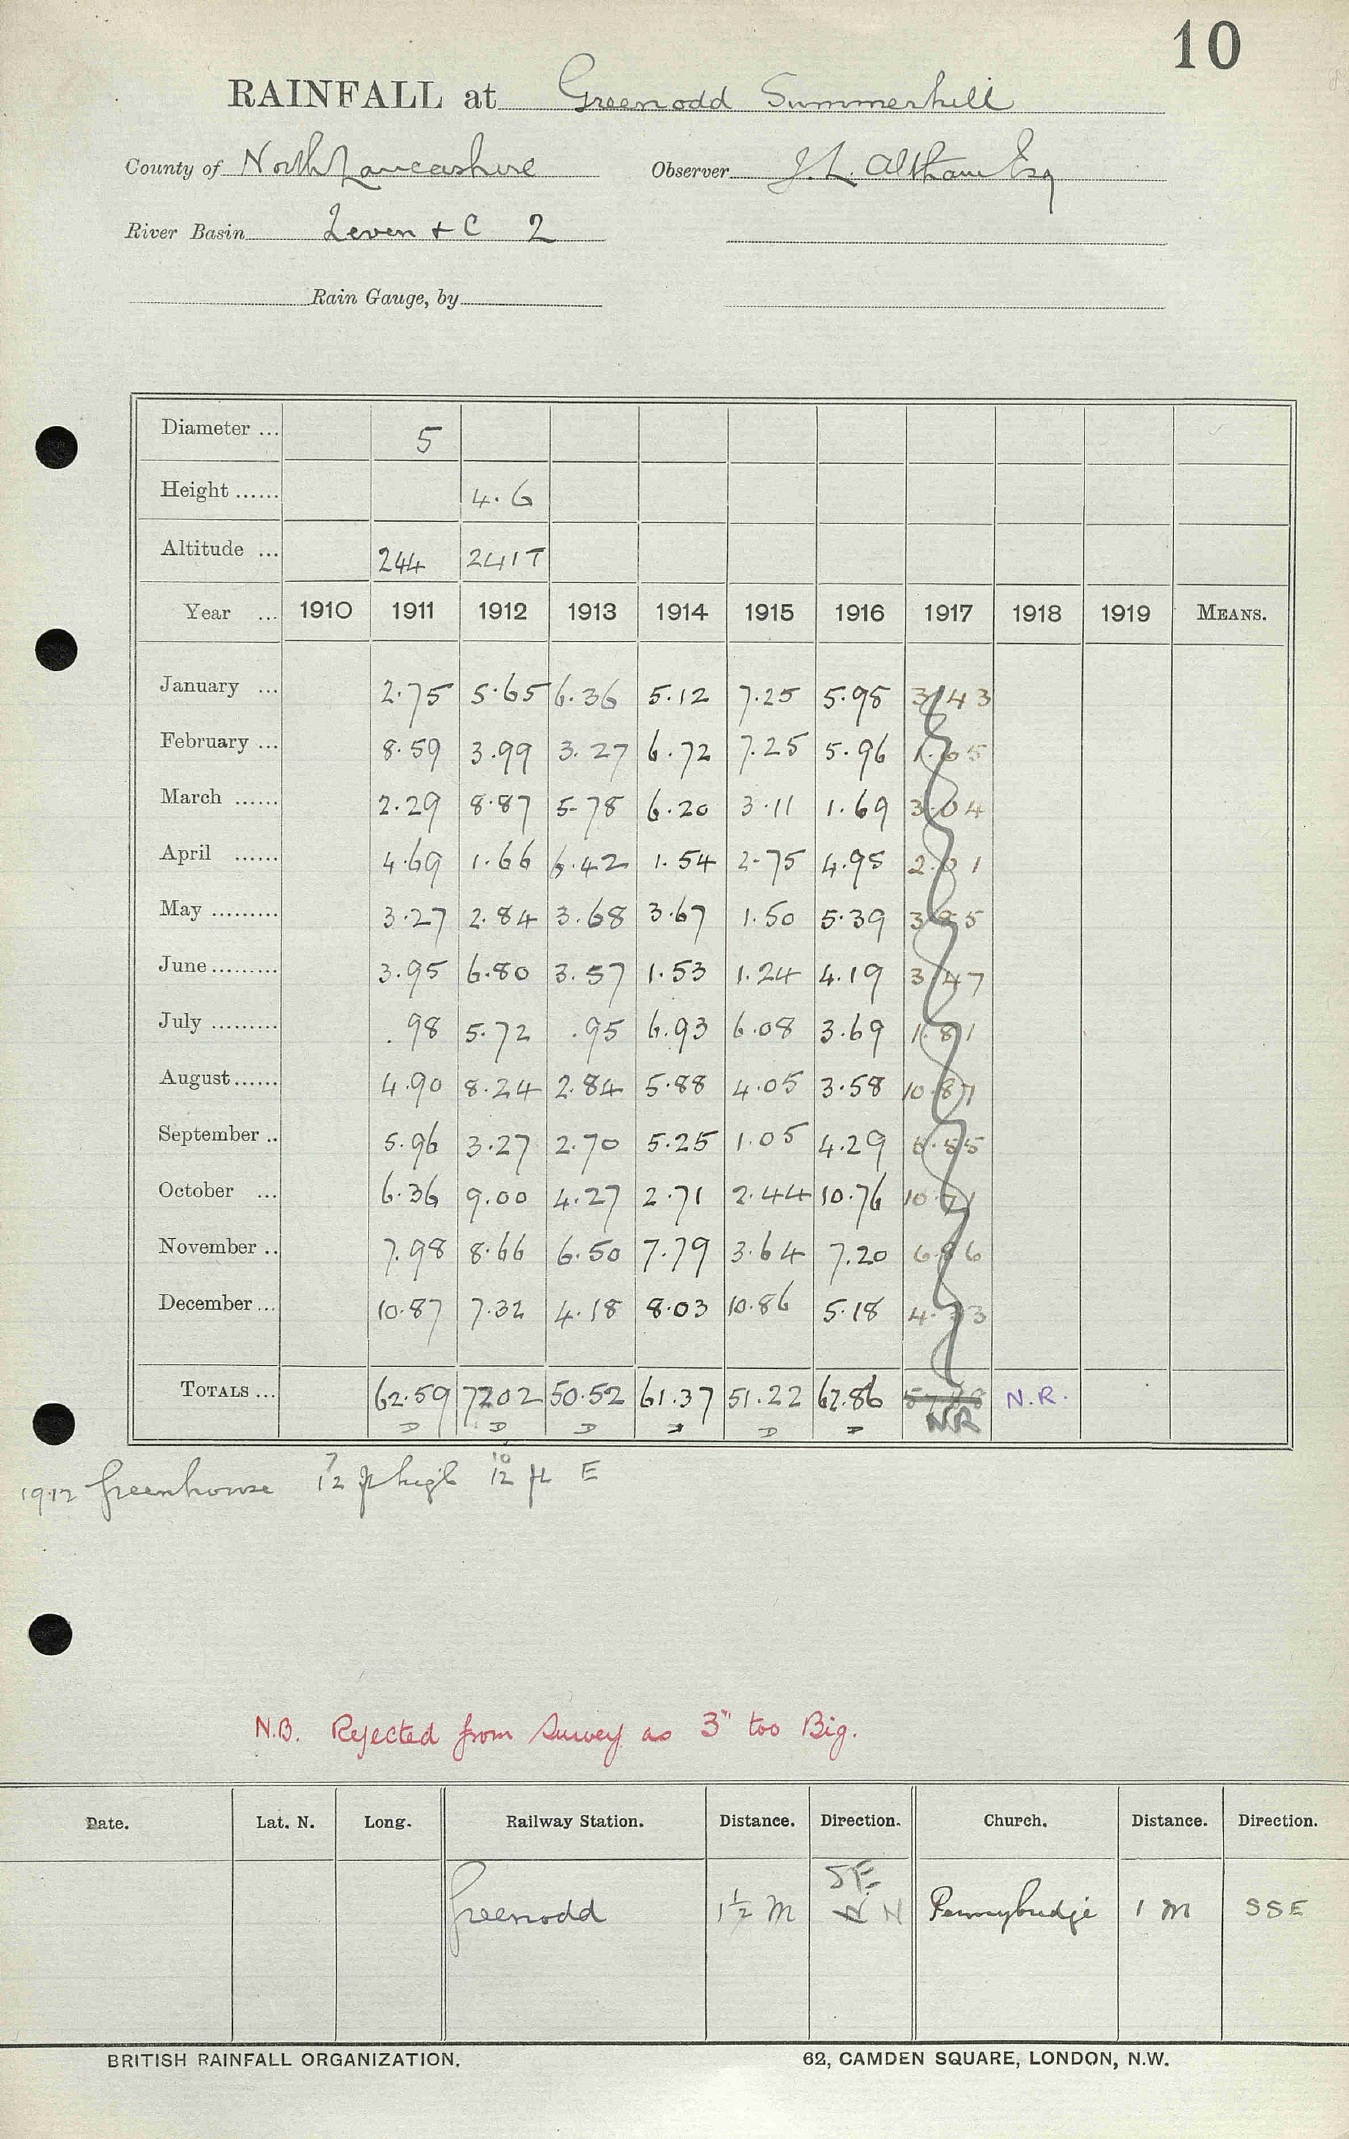 10
RAINFALL at Greenodd Summerhill
County of North Lancashire Observer J. L. Altham Esq
River Basin Leven & C 2
Rain Gauge, by
Diameter ... 5
Height ...... 4.6
Altitude ... 244 241T
Year ... 1910 1911 1912 1913 1914 1915 1916 1917 1918 1919 MEANS.
January ... 2.75 5.65 6.36 5.12 7.25 5.98 3.43
February ... 8.59 3.99 3.27 6.72 7.25 5.96 1.65
March ...... 2.29 8.87 5.78 6.20 3.11 1.69 3.04
April ...... 4.69 1.66 6.42 1.54 2.75 4.95 2.01
May ......... 3.27 2.84 3.68 3.67 1.50 5.39 3.85
June ......... 3.95 6.80 3.57 1.53 1.24 4.19 3.47
July ......... .98 5.72 .95 6.93 6.08 3.69 1.81
August ...... 4.90 8.24 2.84 5.88 4.05 3.58 10.87
September .. 5.96 3.27 2.70 5.25 1.05 4.29 5.55
October ... 6.36 9.00 4.27 2.71 2.44 10.76 10.71
November .. 7.98 8.66 6.50 7.79 3.64 7.20 6.96
December ... 10.87 7.32 4.18 8.03 10.86 5.18
TOTALS ... 62.59 7202 50.52 61.37 51.22 62.86 N.R.
D D D D NR
1912 Greenhouse 7/12 ft high 10/12 ft E
N.B. Rejected from Survey as 3" too Big.
Date. Lat. N. Long. Railway Station. Distance. Direction. Church. Distance. Direction.
SE
Greenodd 1½ M N N Pennybridge 1 M SSE
BRITISH RAINFALL ORGANIZATION. 62, CAMDEN SQUARE, LONDON, N.W.